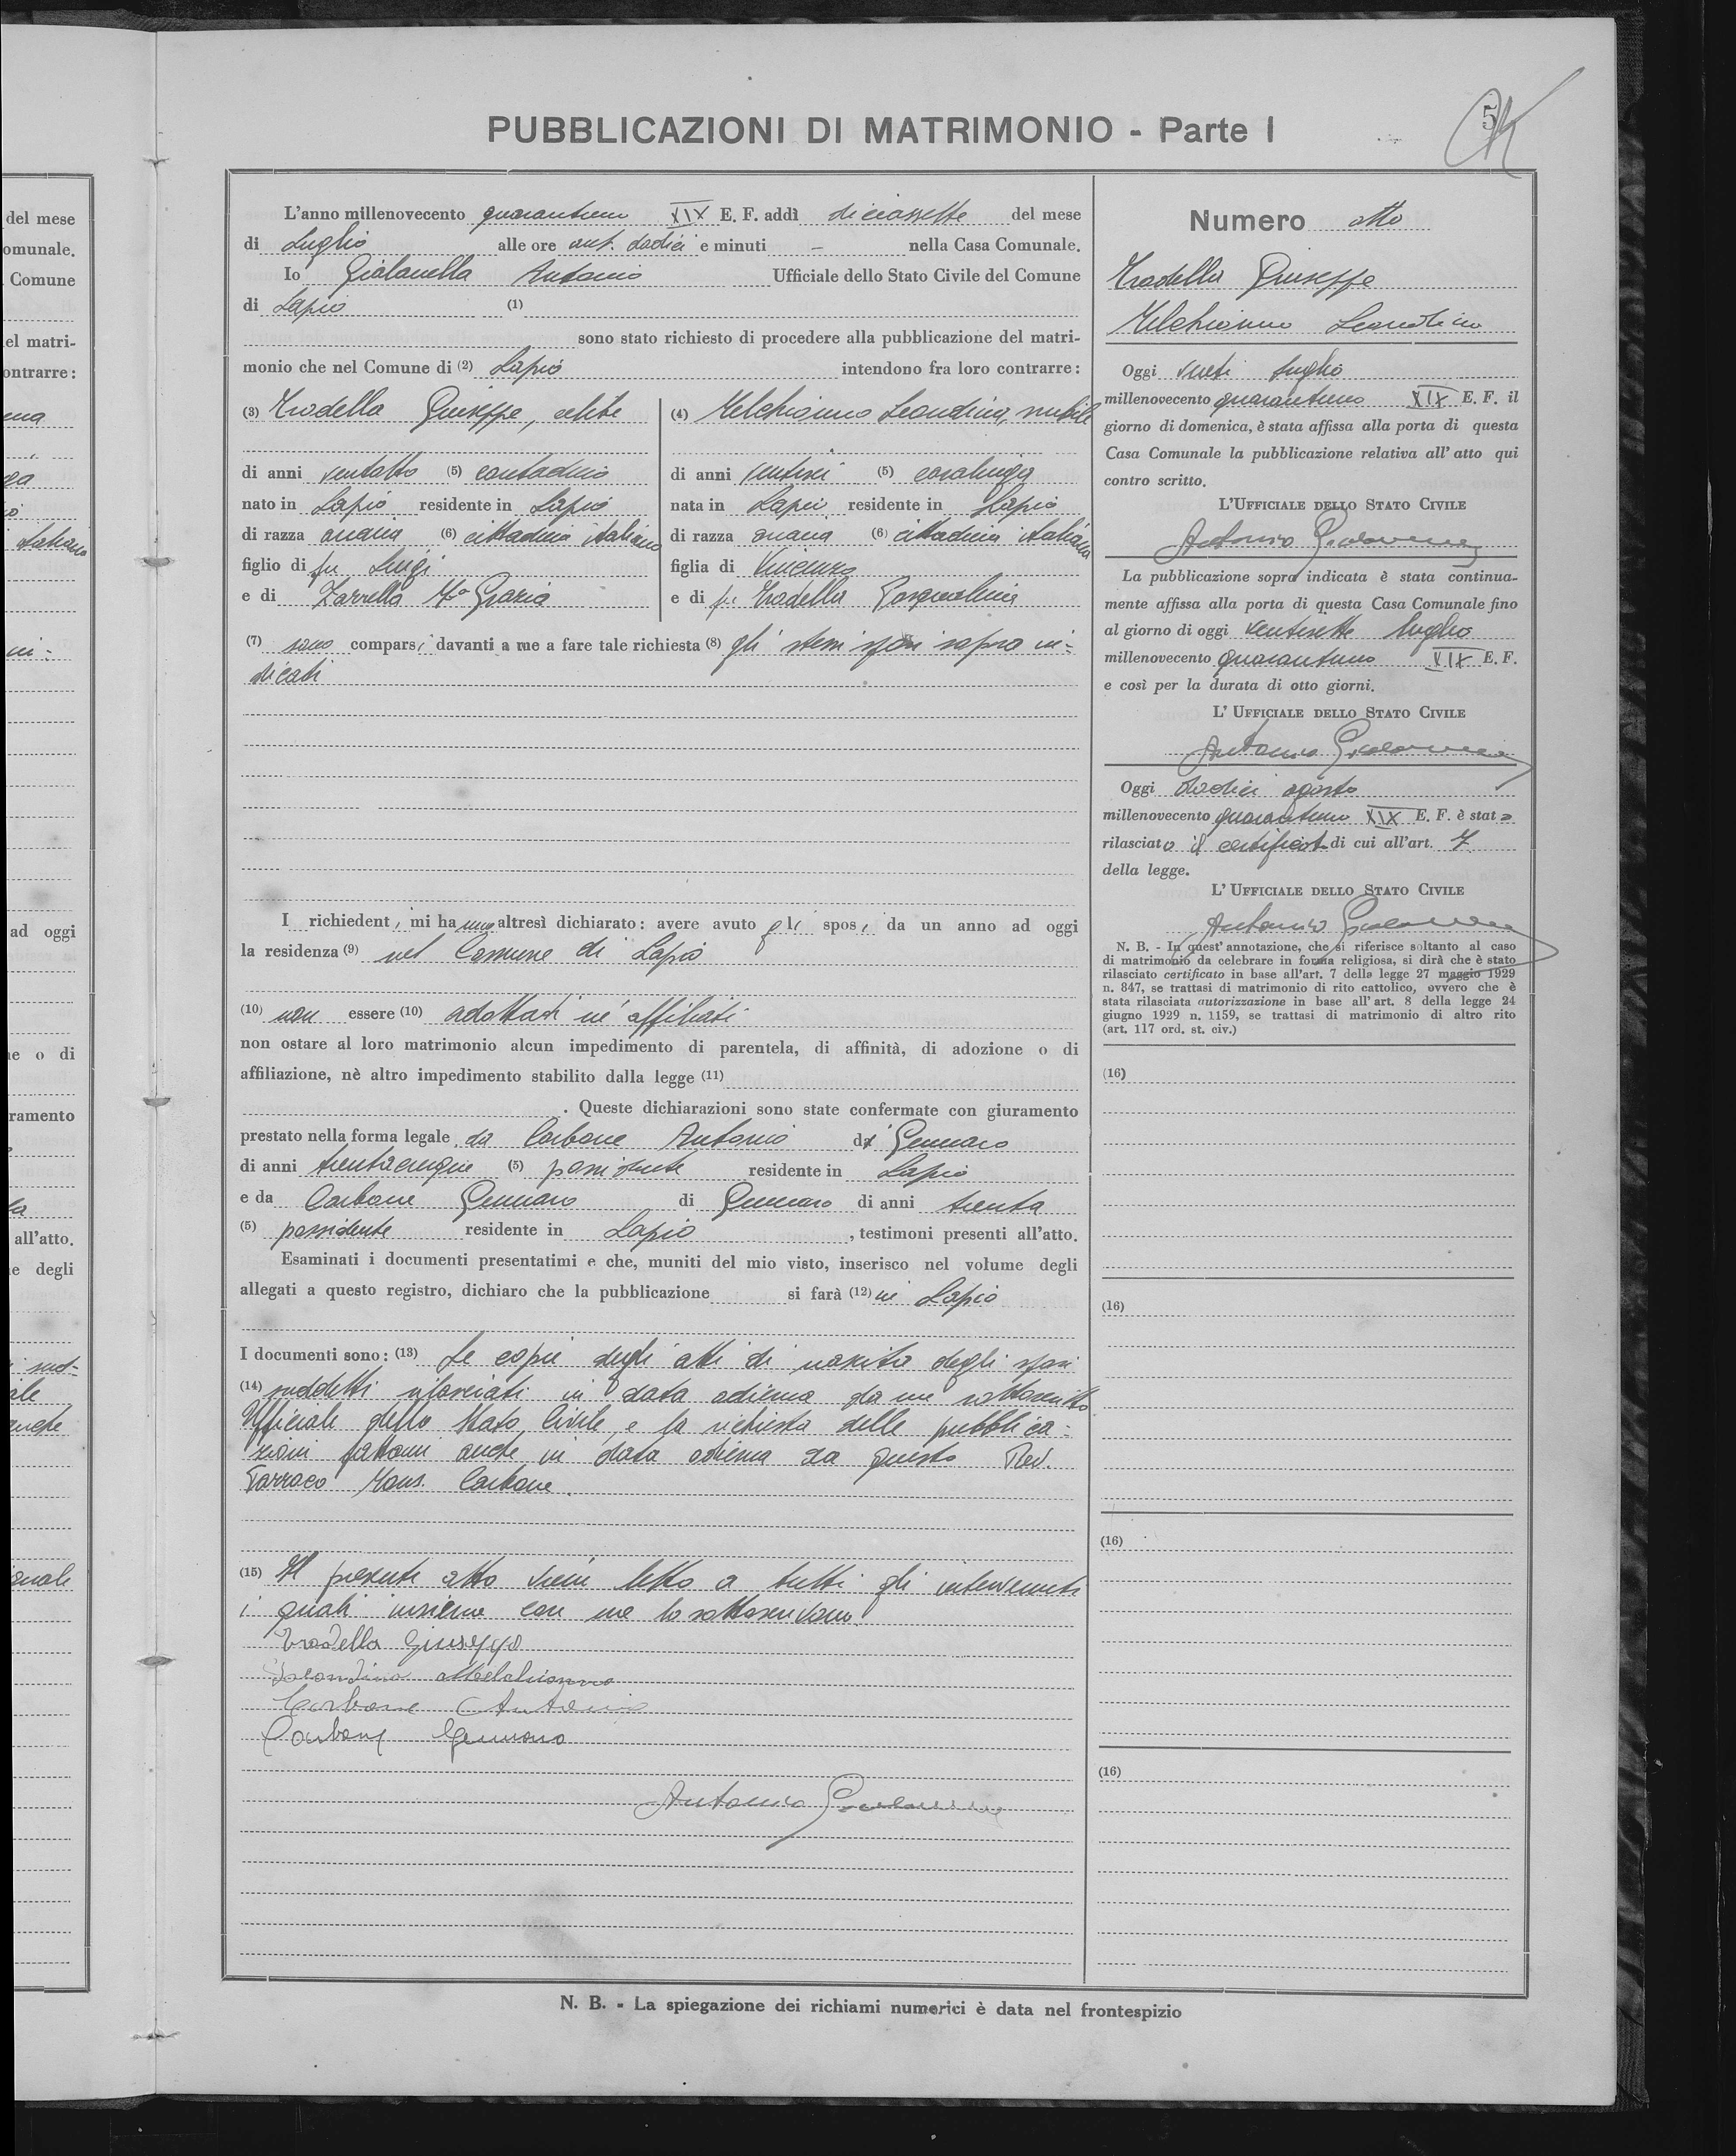 del mese
omunale.
Comune
el matri-
ontrarre:
ad oggi
e o di
ramento
all'atto.
e degli
PUBBLICAZIONI DI MATRIMONIO - Parte I
5
L'anno millenovecento quarantuno XIX E. F. addì diciassette del mese
di Luglio alle ore ant. dodici e minuti – nella Casa Comunale.
Io Gialanella Antonio Ufficiale dello Stato Civile del Comune
di Lapio (1)
sono stato richiesto di procedere alla pubblicazione del matri-
monio che nel Comune di (2) Lapio intendono fra loro contrarre:
(3) Trodella Giuseppe, celibe
di anni ventotto (5) contadino
nato in Lapio residente in Lapio
di razza ariana (6) cittadino italiano
figlio di fu Luigi
e di Zarrella Ma Grazia
(4) Melchionno Leondina, nubile
di anni ventisei (5) casalinga
nata in Lapio residente in Lapio
di razza ariana (6) cittadina italiana
figlia di Vincenzo
e di fu Trodella Pasqualina
(7) sono comparsi davanti a me a fare tale richiesta (8) gli stessi sposi sopra in=
dicati
I richiedenti mi hanno altresì dichiarato: avere avuto gli sposi da un anno ad oggi
la residenza (9) nel Comune di Lapio
(10) non essere (10) adottati nè affiliati
non ostare al loro matrimonio alcun impedimento di parentela, di affinità, di adozione o di
affiliazione, nè altro impedimento stabilito dalla legge (11)
. Queste dichiarazioni sono state confermate con giuramento
prestato nella forma legale da Carbone Antonio di Gennaro
di anni trentacinque (5) possidente residente in Lapio
e da Carbone Gennaro di Gennaro di anni trenta
(5) possidente residente in Lapio , testimoni presenti all'atto.
Esaminati i documenti presentatimi e che, muniti del mio visto, inserisco nel volume degli
allegati a questo registro, dichiaro che la pubblicazione si farà (12) in Lapio
I documenti sono: (13) Le copie degli atti di nascita degli sposi
(14) suddetti rilasciati in data odierna da me sottoscritto
Ufficiale dello Stato Civile, e la richiesta delle pubblica=
zioni fattami anche in data odierna da questo Rev.
Parroco Mons. Carbone.
(15) Il presente atto viene letto a tutti gli intervenuti
i quali insieme con me lo sottoscrivono.
Trodella Giuseppe
Leondina Melchionno
Carbone Antonio
Carbone Gennaro
Antonio Gialanella
Numero otto
Trodella Giuseppe
Melchionno Leondina
Oggi venti luglio
millenovecento quarantuno XIX E. F. il
giorno di domenica, è stata affissa alla porta di questa
Casa Comunale la pubblicazione relativa all'atto qui
contro scritto.
L'UFFICIALE DELLO STATO CIVILE
Antonio Gialanella
La pubblicazione sopra indicata è stata continua-
mente affissa alla porta di questa Casa Comunale fino
al giorno di oggi ventisette luglio
millenovecento quarantuno XIX E. F.
e così per la durata di otto giorni.
L'UFFICIALE DELLO STATO CIVILE
Antonio Gialanella
Oggi dodici agosto
millenovecento quarantuno XIX E. F. è stato
rilasciato il certificato di cui all'art. 7
della legge.
L'UFFICIALE DELLO STATO CIVILE
Antonio Gialanella
N. B. - In quest'annotazione, che si riferisce soltanto al caso
di matrimonio da celebrare in forma religiosa, si dirà che è stato
rilasciato certificato in base all'art. 7 della legge 27 maggio 1929
n. 847, se trattasi di matrimonio di rito cattolico, ovvero che è
stata rilasciata autorizzazione in base all'art. 8 della legge 24
giugno 1929 n. 1159, se trattasi di matrimonio di altro rito
(art. 117 ord. st. civ.)
(16)
(16)
(16)
(16)
N. B. - La spiegazione dei richiami numerici è data nel frontespizio